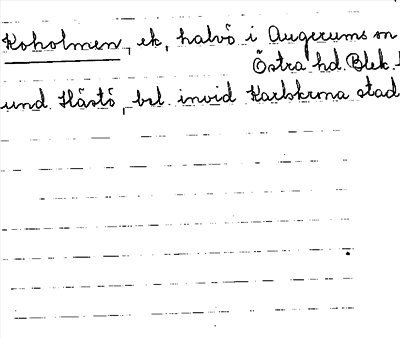 Koholmen, ek, halvö i Augerums sn
Östra hd. Blek.
und. Hästö, bel. invid Karlskrona stad